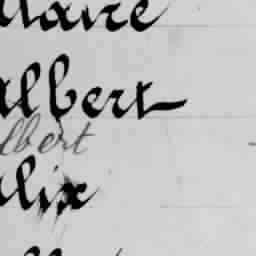 laire
Albert
lbert
lix